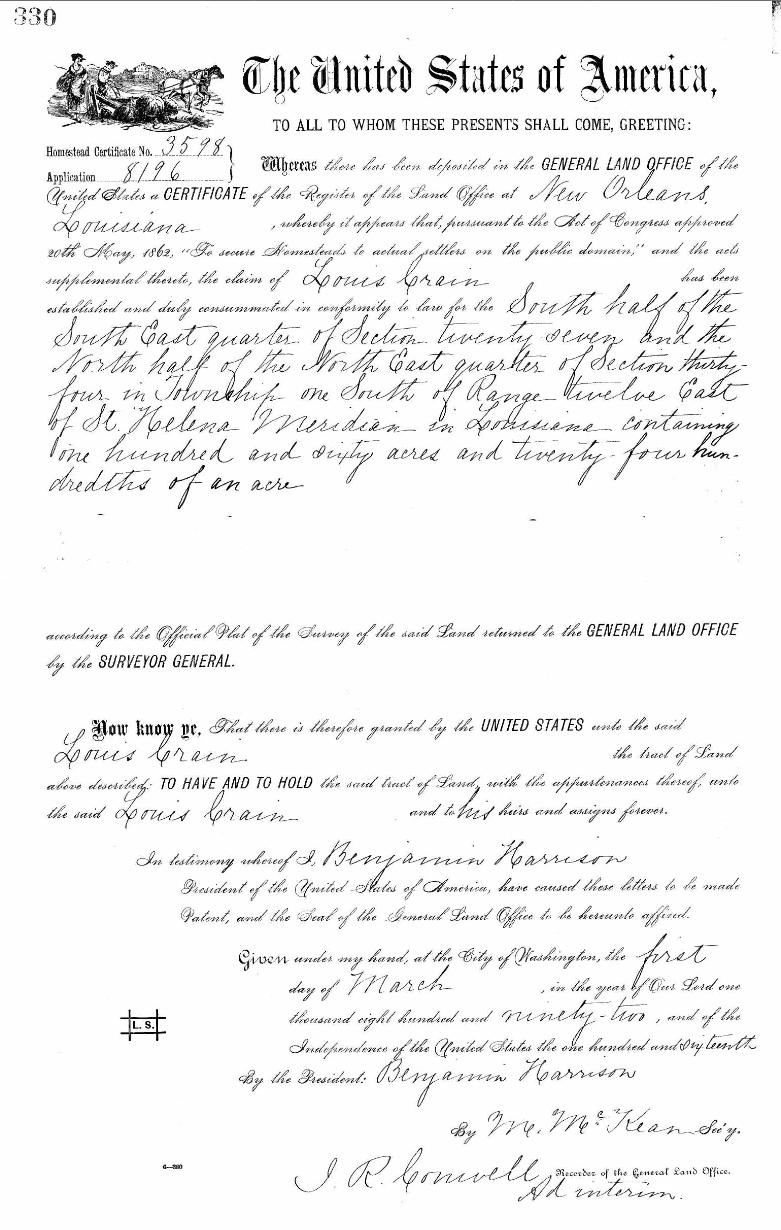 330
The United States of America,
TO ALL TO WHOM THESE PRESENTS SHALL COME, GREETING:
Homestead Certificate No. 3598
Application 8196
Whereas there has been deposited in the GENERAL LAND OFFICE of the
United States a CERTIFICATE of the Register of the Land Office at New Orleans,
Louisiana , whereby it appears that, pursuant to the Act of Congress approved
20th May, 1862, "To secure Homesteads to actual settlers on the public domain," and the acts
supplemental thereto, the claim of Louis Crain has been
established and duly consummated in conformity to law for the South half of the
South East quarter of Section twenty seven and the
North half of the North East quarter of Section thirty-
four in Township one South of Range twelve East
of St. Helena Meridian in Louisiana containing
one hundred and sixty acres and twenty-four hun-
dredths of an acre
according to the Official Plat of the Survey of the said Land returned to the GENERAL LAND OFFICE
by the SURVEYOR GENERAL.
Now know ye, That there is therefore granted by the UNITED STATES unto the said
Louis Crain the tract of Land
above described: TO HAVE AND TO HOLD the said tract of Land, with the appurtenances thereof, unto
the said Louis Crain and to his heirs and assigns forever.
In testimony whereof I, Benjamin Harrison
President of the United States of America, have caused these letters to be made
Patent, and the Seal of the General Land Office to be hereunto affixed.
Given under my hand, at the City of Washington, the first
day of March , in the year of Our Lord one
thousand eight hundred and ninety-two , and of the
Independence of the United States the one hundred and sixteenth
By the President: Benjamin Harrison
L. S.
By M. McKean Sec'y.
6—380
I. R. Conwell , Recorder of the General Land Office.
Ad interim.